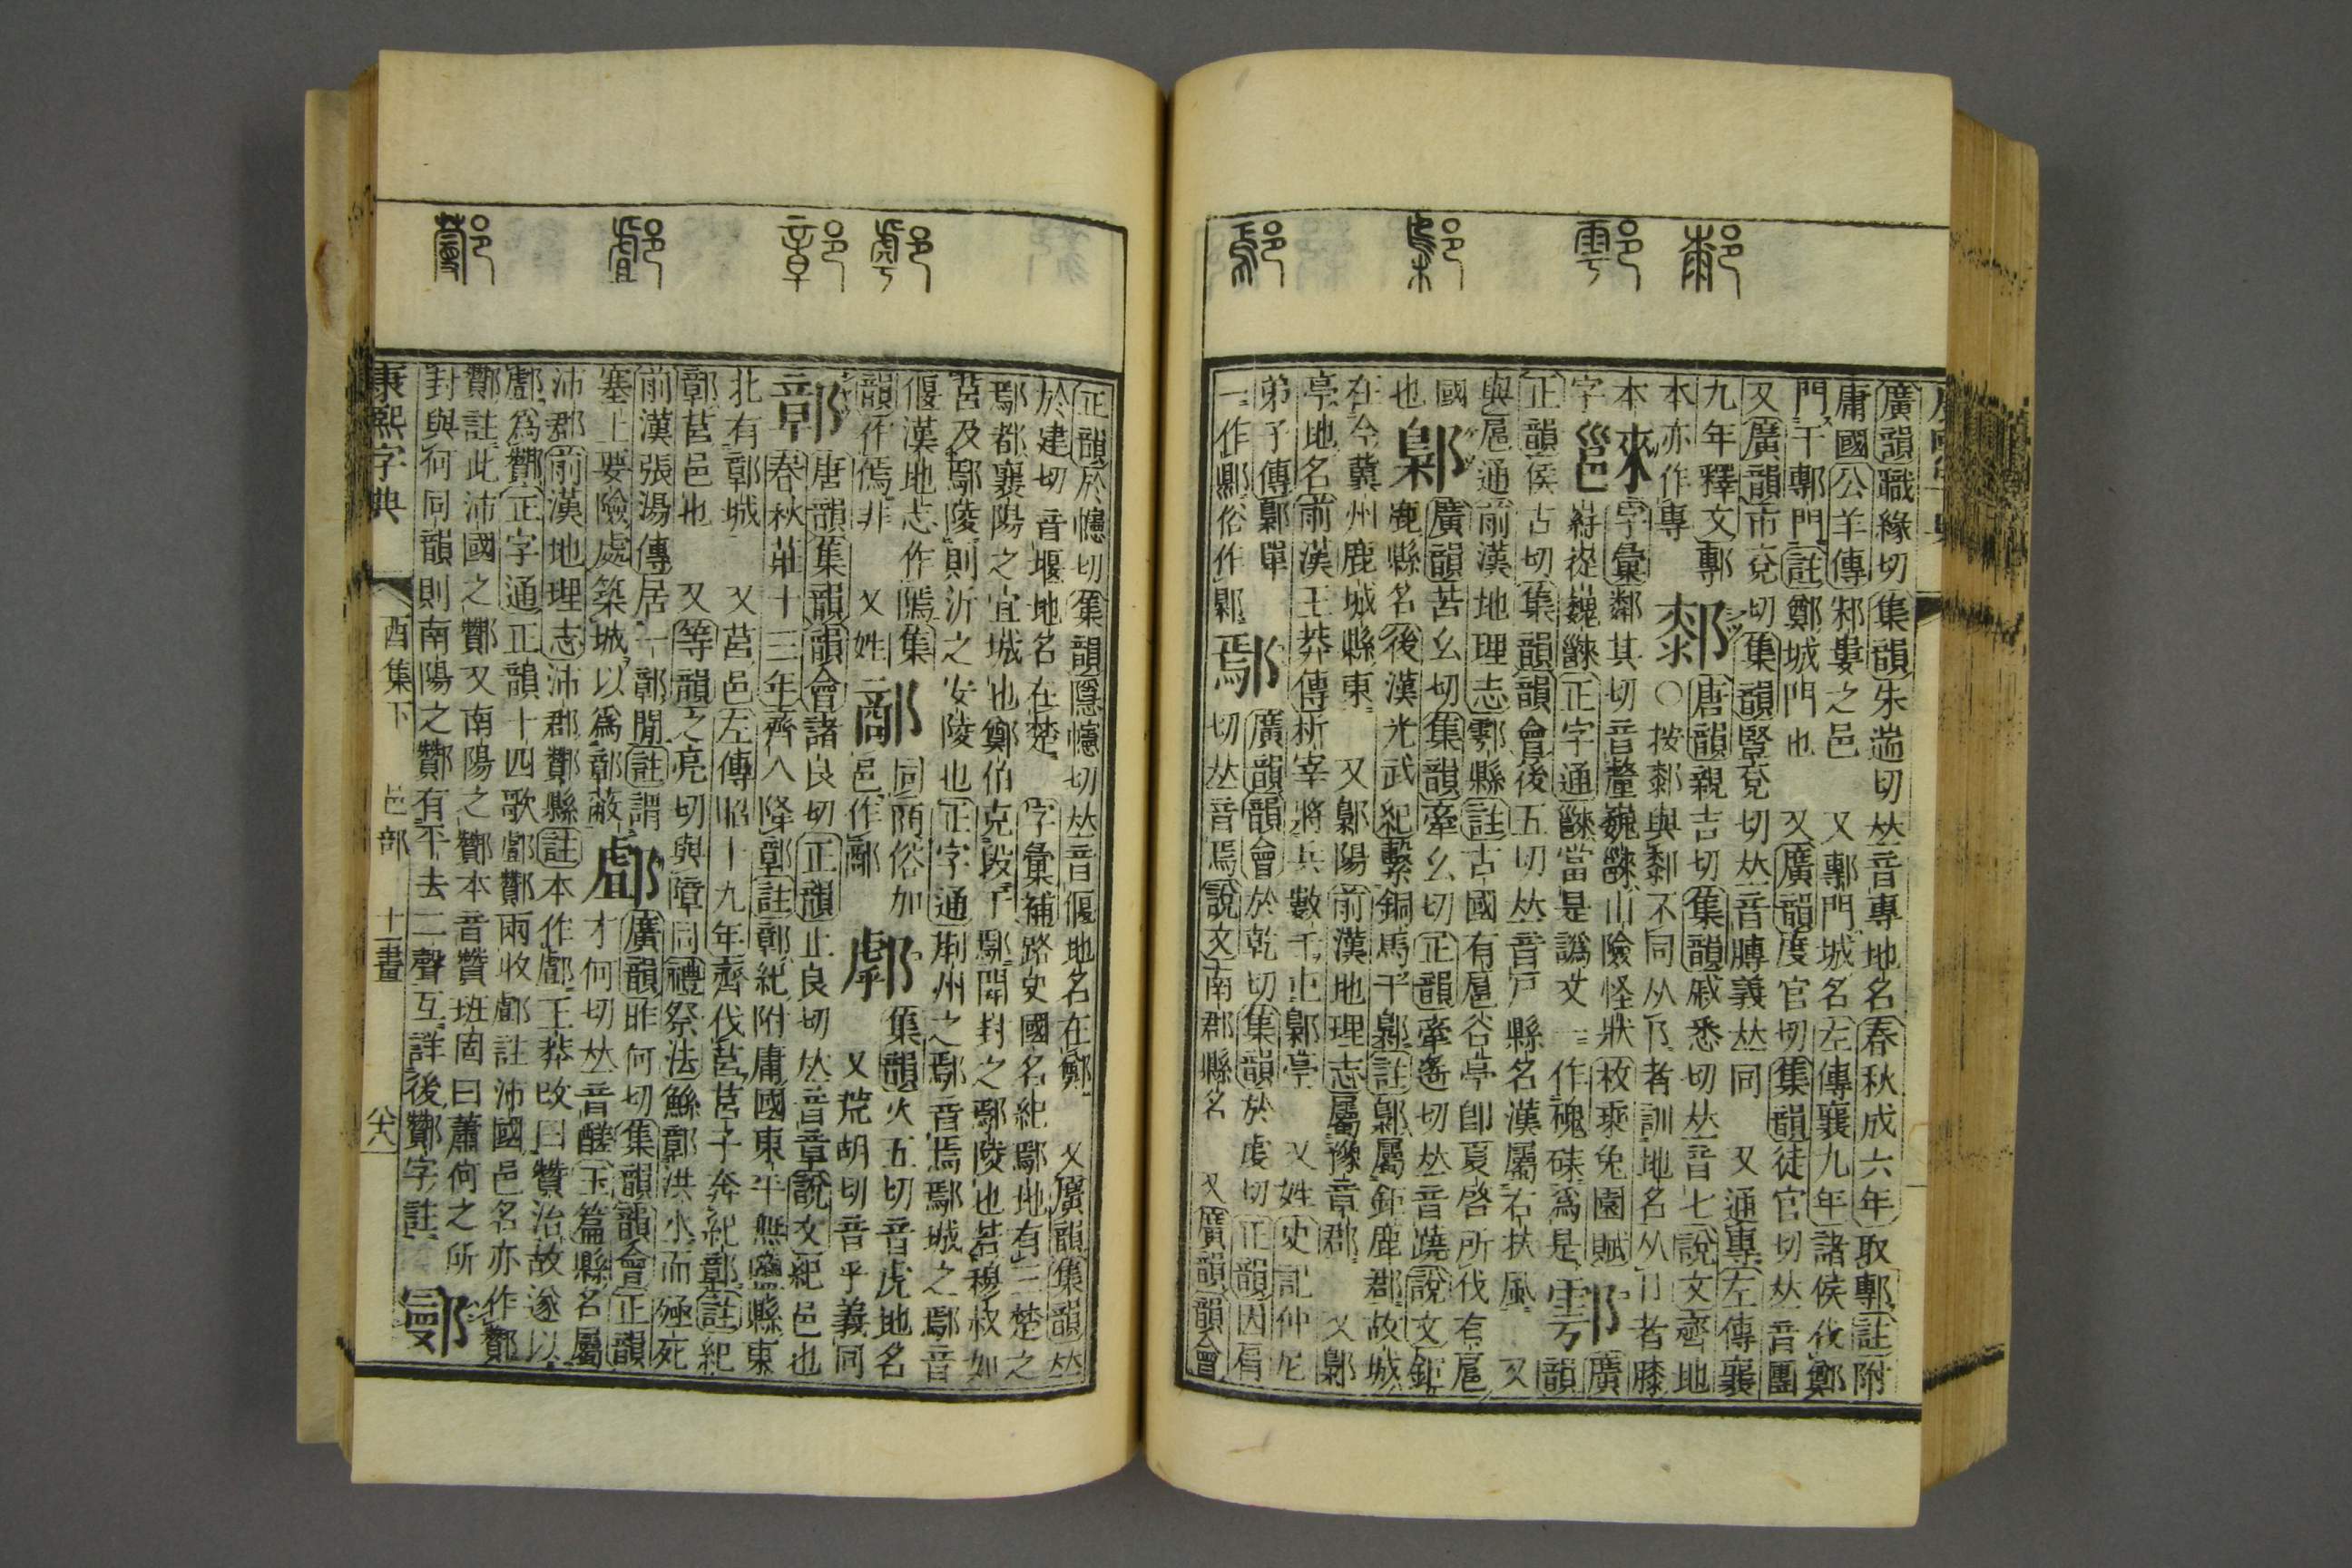 廣韻職緣切集韻朱遄切𠀤音專地名春秋成六年取鄟註附
庸國公羊傳邾婁之邑 又鄟門城名左傳襄九年諸侯伐鄭
門于鄟門註鄭城門也 又廣韻度官切集韻徒官切𠀤音團
又廣韻市兗切集韻豎兗切𠀤音膞義𠀤同 又通專左傳襄
九年釋文鄟 唐韻親吉切集韻戚悉切𠀤音七說文齊地
本亦作專 ○按 與 不同从卪者訓地名从卩者膝
本 字彙鄰其切音釐巍 山險怪狀枚乘兔園賦 鄠 廣
字 巍 正字通 當是譌文一作磈 爲是 韻
正韻侯古切集韻韻會後五切𠀤音戸縣名漢屬右扶風 又
與扈通前漢地理志鄠縣註古國有扈谷亭卽夏啓所伐有扈
國 鄡 廣韻苦幺切集韻牽幺切正韻牽遙切𠀤音蹺說文鉅
也 鹿縣名後漢光武紀擊銅馬于鄡註鄡屬鉅鹿郡故城
在今冀州鹿城縣東 又鄡陽前漢地理志屬豫章郡 又鄡
亭地名前漢王莽傳析宰將兵數千屯鄡亭 又姓史記仲尼
弟子傳鄡單 鄢 廣韻韻會於乾切集韻於虔切正韻因肩
一作 俗作 切𠀤音焉說文南郡縣名 又廣韻韻會
正韻於幰切集韻隱幰切𠀤音偃地名在鄭 又廣韻集韻𠀤
於建切音堰地名在楚 字彙補路史國名紀鄢地有三楚之
鄢都襄陽之宜城也鄭伯克段于鄢開封之鄢陵也若穆叔如
莒及鄢陵則沂之安陵也正字通荆州之鄢音焉鄢城之鄢音
偃漢地志作傿集 鄅 同 俗加 鄠 集韻火五切音虎地名
韻作傿非 又姓 邑作 又荒胡切音乎義同
鄣 唐韻集韻韻會諸良切正韻止良切𠀤音章說文紀邑也
春秋莊十三年齊人降鄣註鄣紀附庸國東平無鹽縣東
北有鄣城 又莒邑左傳昭十九年齊伐莒莒子奔紀鄣註紀
鄣莒邑也 又等韻之亮切與障同禮祭法鯀鄣洪水而殛死
前漢張湯傳居一鄣閒註謂 䣜 廣韻昨何切集韻韻會正韻
塞上要險處築城以爲鄣蔽 才何切𠀤音醝玉篇縣名屬
沛郡前漢地理志沛郡酇縣註本作䣜王莽改曰贊治故遂以
䣜爲酇正字通正韻十四歌䣜酇兩收䣜註沛國邑名亦作酇
酇註此沛國之酇又南陽之酇本音贊班固曰蕭何之所
封與何同韻則南陽之酇有平去二聲互詳後酇字註 鄤
康熙字典 酉集下 邑部 十一畫 六